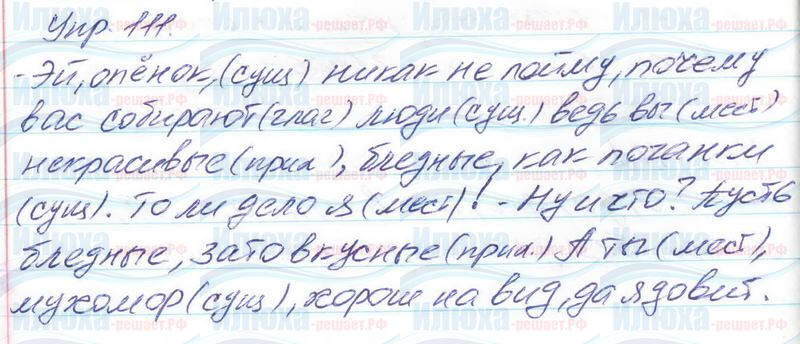 Упр. 111.
- Эй, опёнок, (сущ) никак не пойму, почему
вас собирают (глаг) люди (сущ.) ведь вы (мест)
некрасивые (прил), бледные, как поганки
(сущ). То ли дело я (мест)! - Ну и что? Пусть
бледные, зато вкусные (прил.) А ты (мест),
мухомор (сущ), хорош на вид, да ядовит.